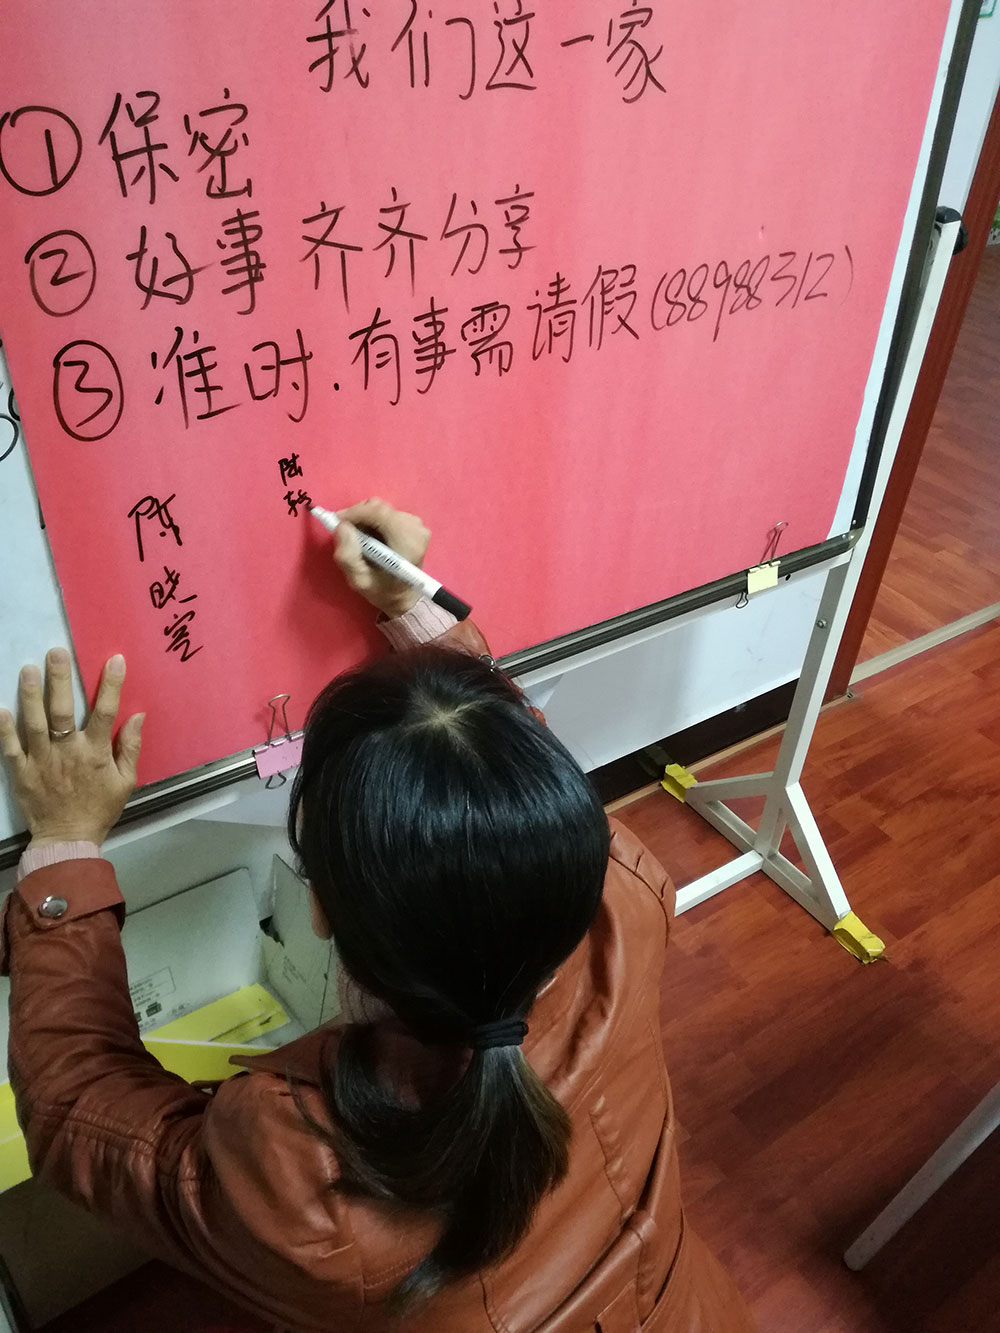 我们这一家
①保密
②好事齐齐分享
③准时.有事需请假(88988312)
陈晓空
陆